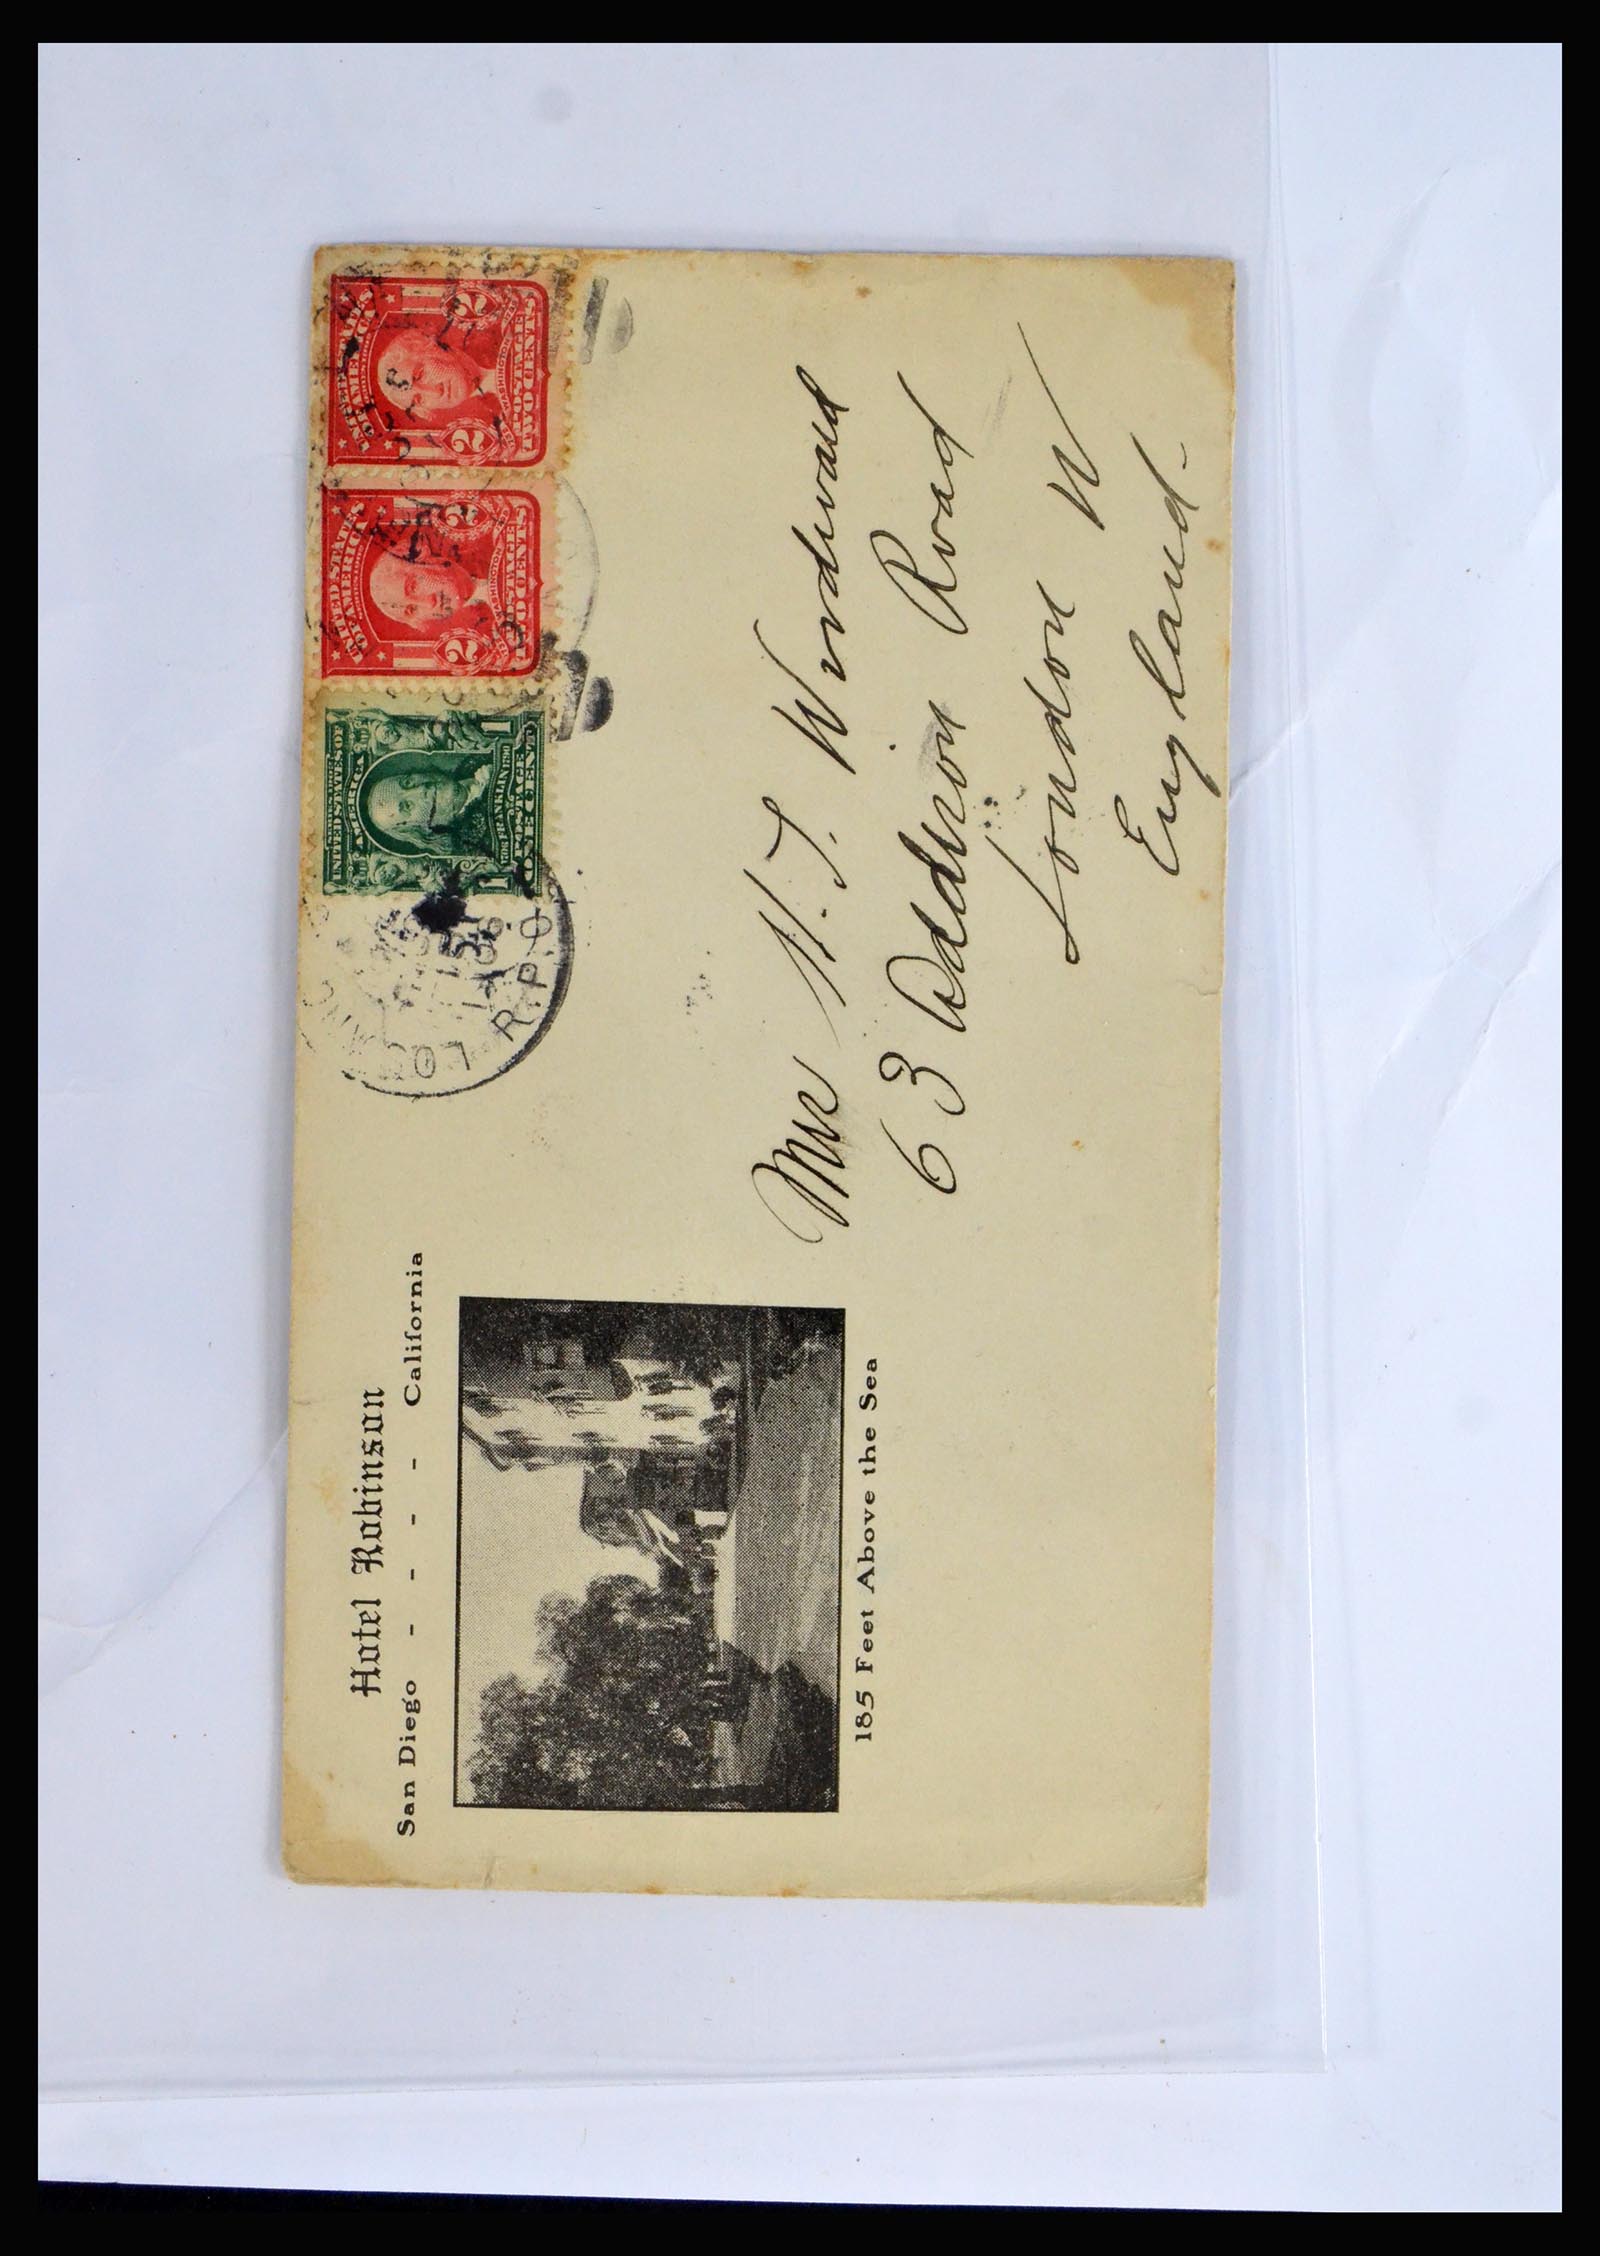 Hotel Robinson
San Diego - - - - California
185 Feet Above the Sea
UNITED STATES OF AMERICA
POSTAGE
2 2
TWO CENTS
WASHINGTON
UNITED STATES OF AMERICA
POSTAGE
2 2
TWO CENTS
WASHINGTON
UNITED STATES OF AMERICA
FRANKLIN
POSTAGE
1 1
ONE CENT
LOS ANG
R.P.O.
Mr H. T.
63 Addison Road
London W
England.